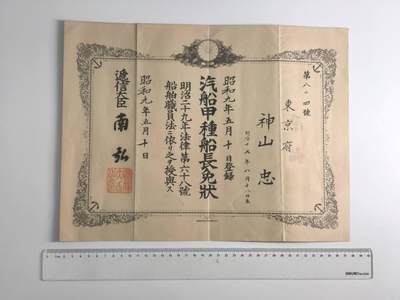 第八〇四號
東京府
神山忠
明治十九年八月十八日生
昭和九年五月十日登錄
汽船甲種船長免狀
明治二十九年法律第六十八號
船舶職員法ニ依リ之ヲ授與ス
昭和九年五月十日
遞信大臣 南弘